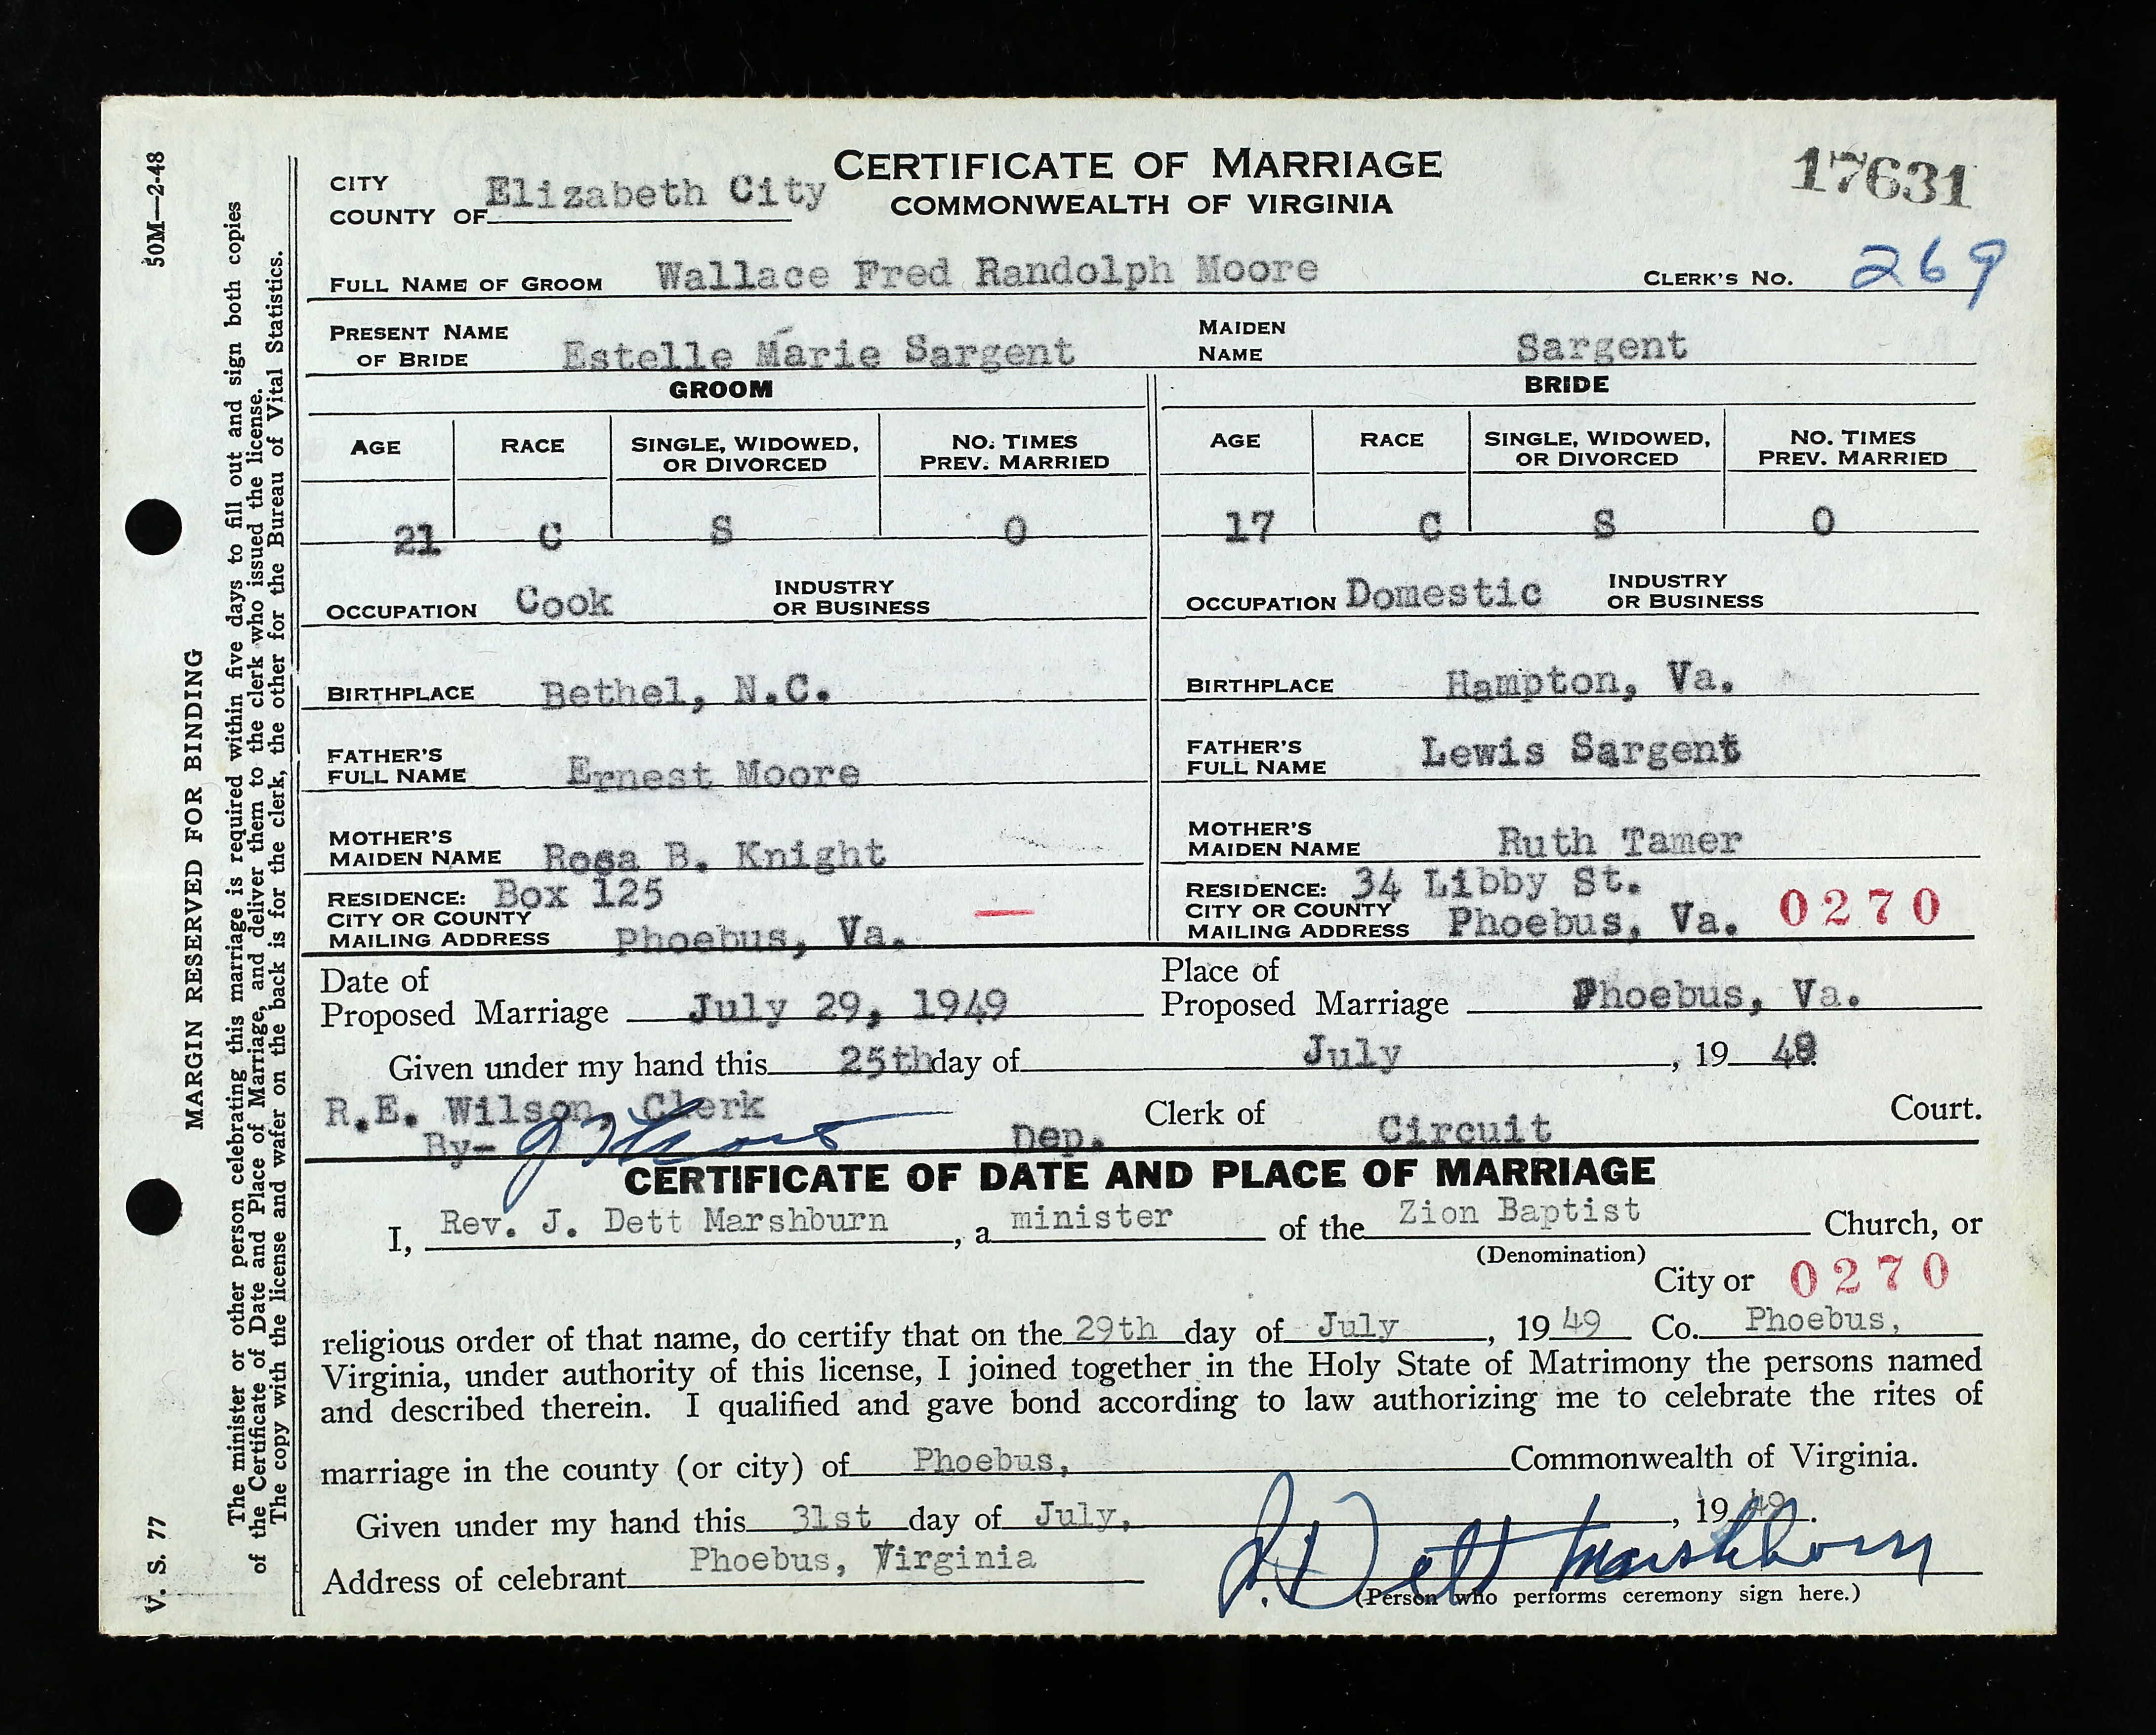 CERTIFICATE OF MARRIAGE
COMMONWEALTH OF VIRGINIA
17631
CITY
COUNTY OF Elizabeth City
FULL NAME OF GROOM Wallace Fred Randolph Moore CLERK'S NO. 269
PRESENT NAME OF BRIDE Estelle Marie Sargent MAIDEN NAME Sargent
GROOM
AGE RACE SINGLE, WIDOWED, OR DIVORCED NO. TIMES PREV. MARRIED
21 C S 0
OCCUPATION Cook INDUSTRY OR BUSINESS
BIRTHPLACE Bethel, N.C.
FATHER'S FULL NAME Ernest Moore
MOTHER'S MAIDEN NAME Rosa B. Knight
RESIDENCE: Box 125
CITY OR COUNTY
MAILING ADDRESS Phoebus, Va.
BRIDE
AGE RACE SINGLE, WIDOWED, OR DIVORCED NO. TIMES PREV. MARRIED
17 C S 0
OCCUPATION Domestic INDUSTRY OR BUSINESS
BIRTHPLACE Hampton, Va.
FATHER'S FULL NAME Lewis Sargent
MOTHER'S MAIDEN NAME Ruth Tamer
RESIDENCE: 34 Libby St.
CITY OR COUNTY
MAILING ADDRESS Phoebus, Va. 0270
Date of Proposed Marriage July 29, 1949 Place of Proposed Marriage Phoebus, Va.
Given under my hand this 25th day of July, 1949.
R.E. Wilson, Clerk
By- Dep. Clerk of Circuit Court.
CERTIFICATE OF DATE AND PLACE OF MARRIAGE
I, Rev. J. Dett Marshburn, a minister of the Zion Baptist Church, or
(Denomination)
City or 0270
religious order of that name, do certify that on the 29th day of July, 1949 Co. Phoebus,
Virginia, under authority of this license, I joined together in the Holy State of Matrimony the persons named
and described therein. I qualified and gave bond according to law authorizing me to celebrate the rites of
marriage in the county (or city) of Phoebus, Commonwealth of Virginia.
Given under my hand this 31st day of July, , 1949.
Address of celebrant Phoebus, Virginia J. Dett Marshburn
(Person who performs ceremony sign here.)
V. S. 77 50M—2-48
MARGIN RESERVED FOR BINDING
The minister or other person celebrating this marriage is required within five days to fill out and sign both copies
of the Certificate of Date and Place of Marriage, and deliver them to the clerk who issued the license.
The copy with the license and wafer on the back is for the clerk, the other for the Bureau of Vital Statistics.